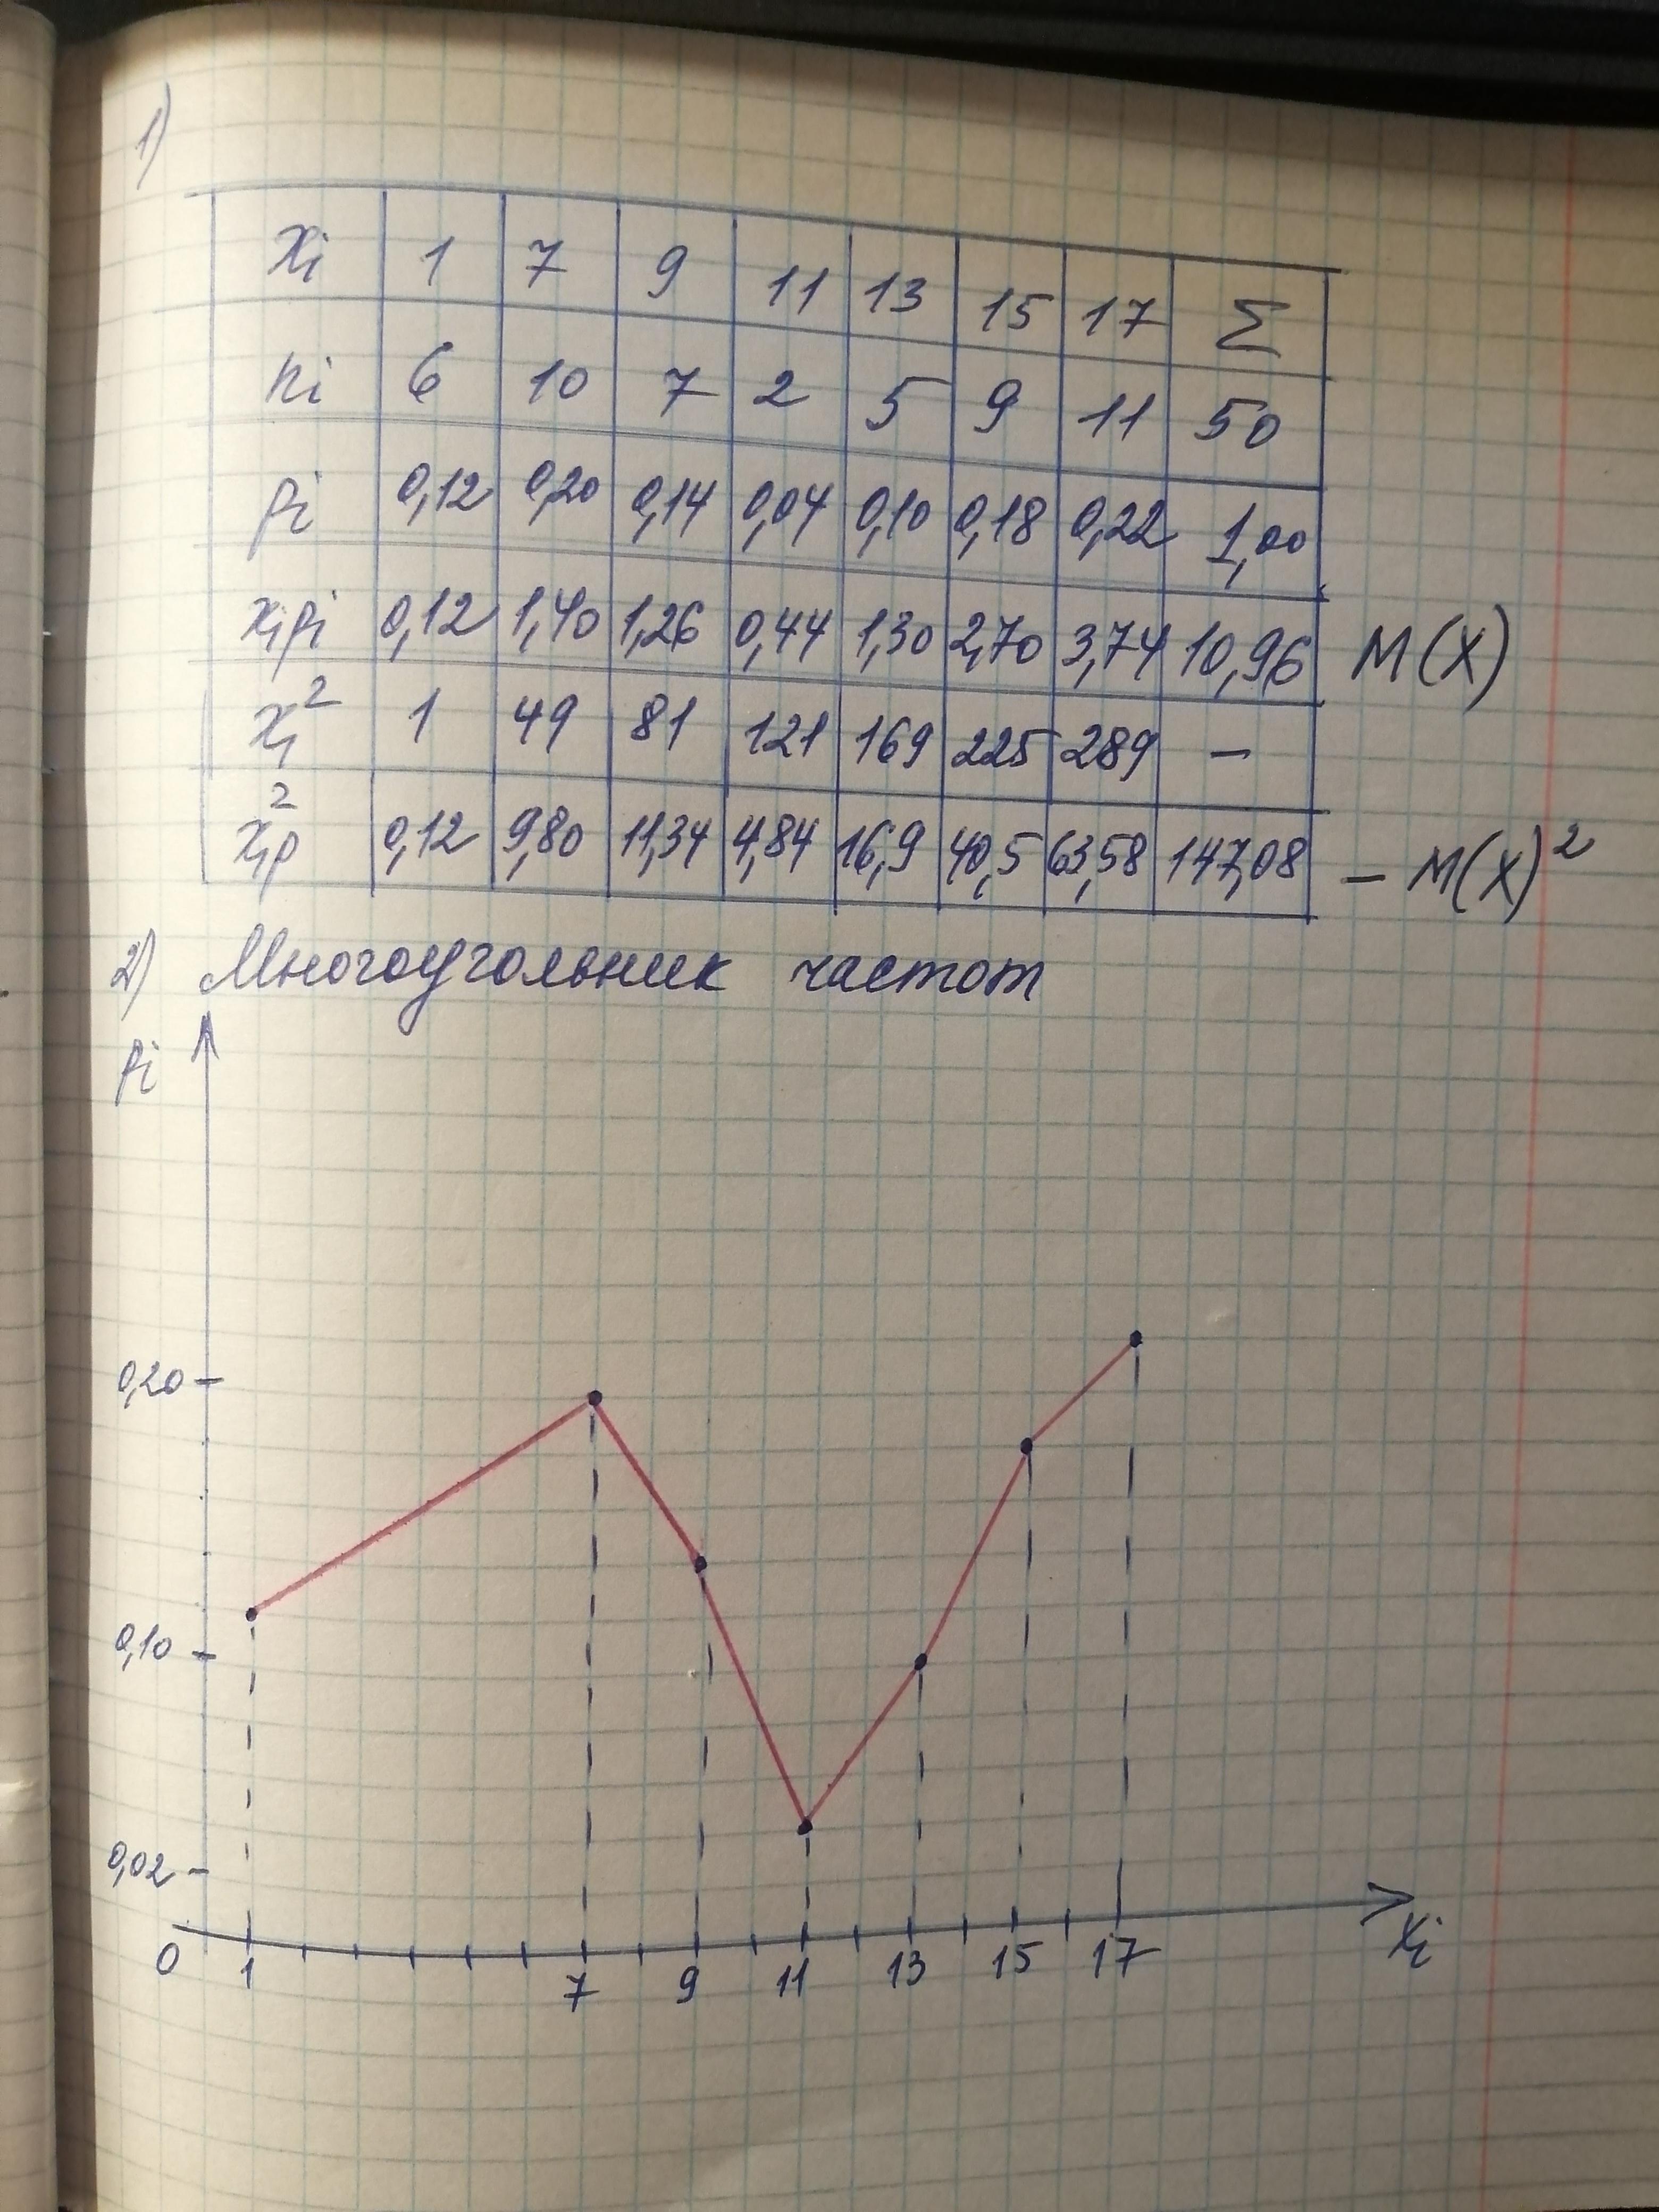 1)
xᵢ 1 7 9 11 13 15 17 Σ
nᵢ 6 10 7 2 5 9 11 50
pᵢ 0,12 0,20 0,14 0,04 0,10 0,18 0,22 1,00
xᵢpᵢ 0,12 1,40 1,26 0,44 1,30 2,70 3,74 10,96 M(X)
xᵢ² 1 49 81 121 169 225 289 –
xᵢ²p 0,12 9,80 11,34 4,84 16,9 40,5 63,58 147,08 – M(X)²
2) Многоугольник частот
pᵢ
0,20
0,10
0,02
0 1 7 9 11 13 15 17 xᵢ